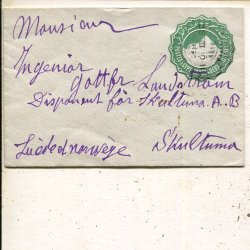 Monsieur
Ingeniör
Gottfr Landström
Disponent för Skultuna A.B
Skultuna